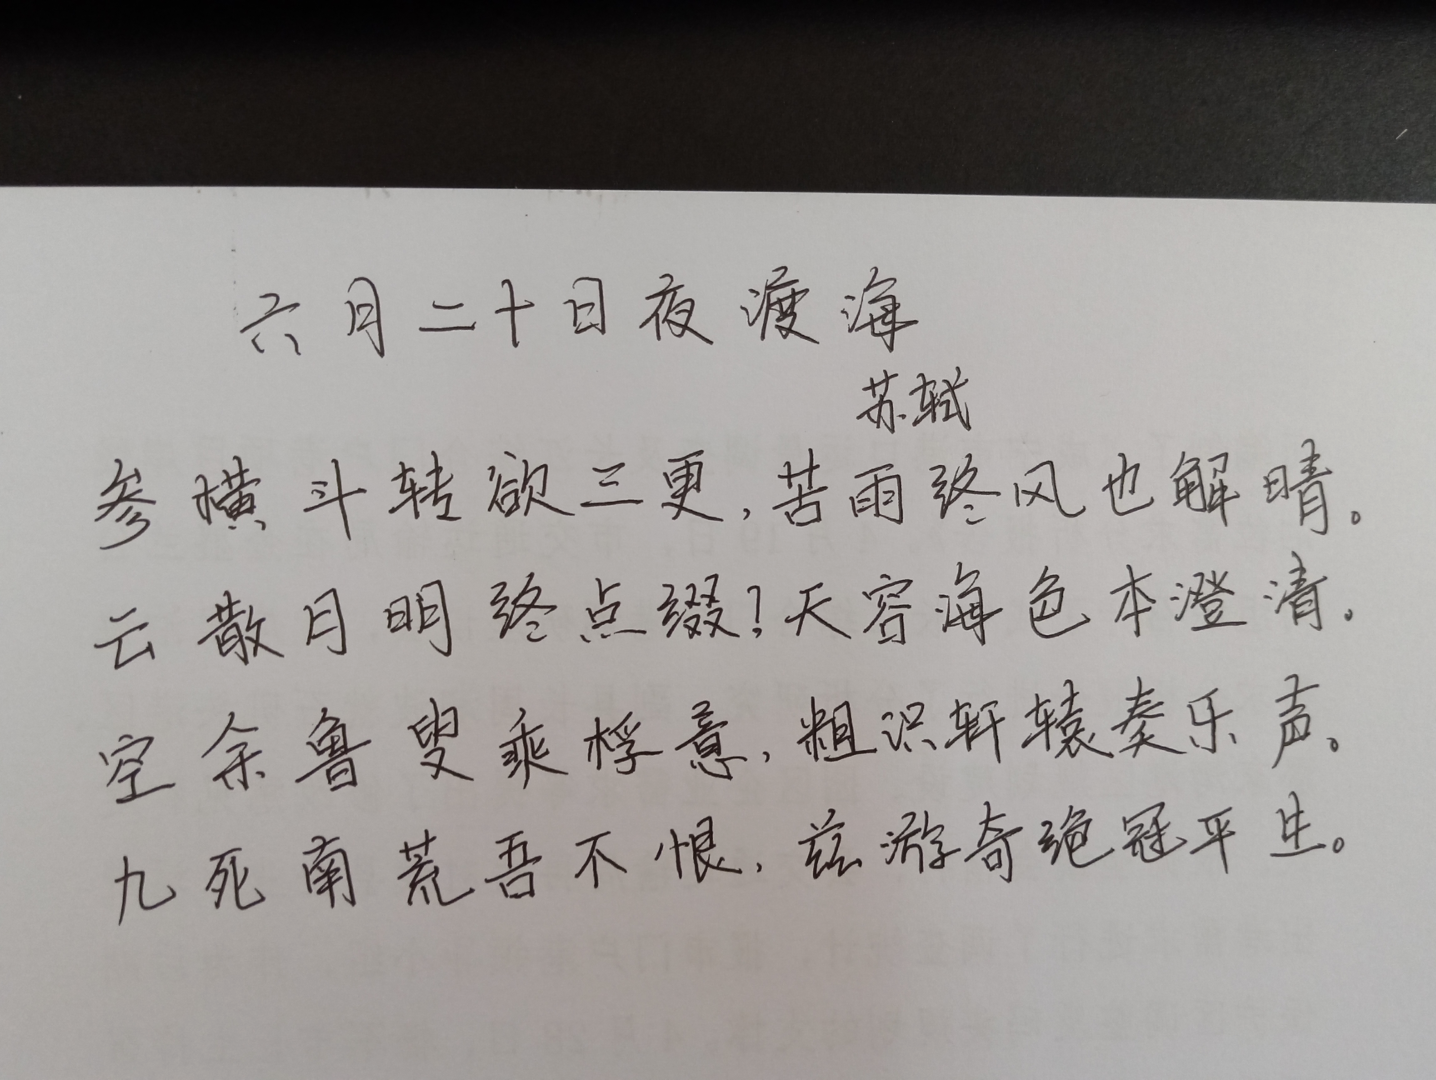 六月二十日夜渡海
苏轼
参横斗转欲三更,苦雨终风也解晴。
云散月明终点缀?天容海色本澄清。
空余鲁叟乘桴意,粗识轩辕奏乐声。
九死南荒吾不恨,兹游奇绝冠平生。